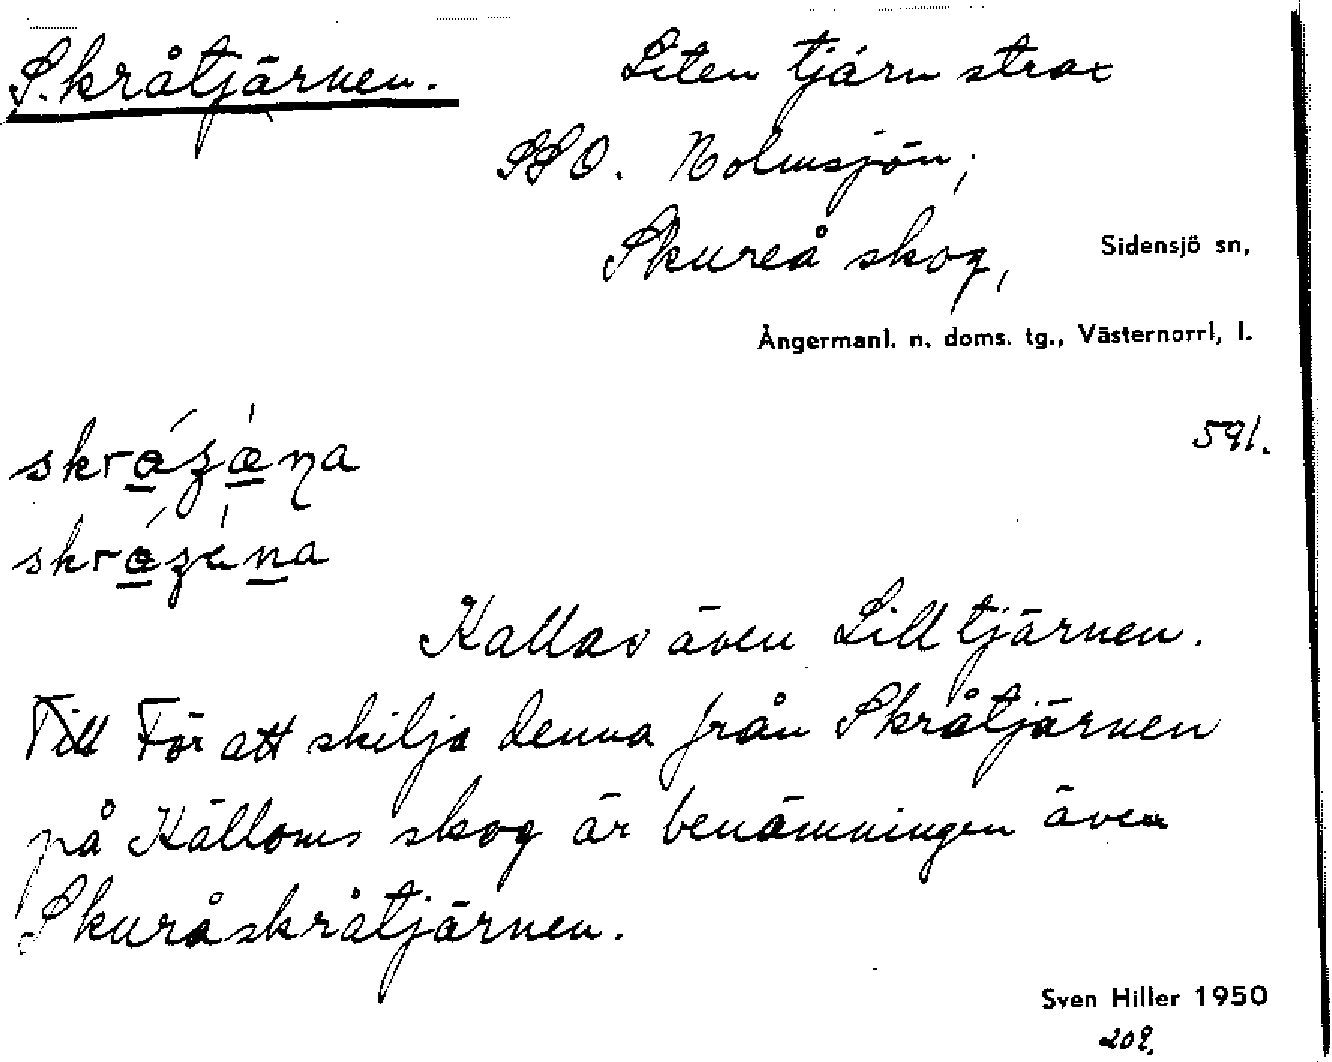 Skråtjärnen. Liten tjärn strax
SSO. Nolmsjön,
Skureå skog, Sidensjö sn,
Ångermanl. n. doms. tg., Västernorrl, l.
591.
Kallas även Lilltjärnen.
Till För att skilja denna från Skråtjärnen
på Källoms skog är benämningen även
Skuråskråtjärnen.
Sven Hiller 1950
202.